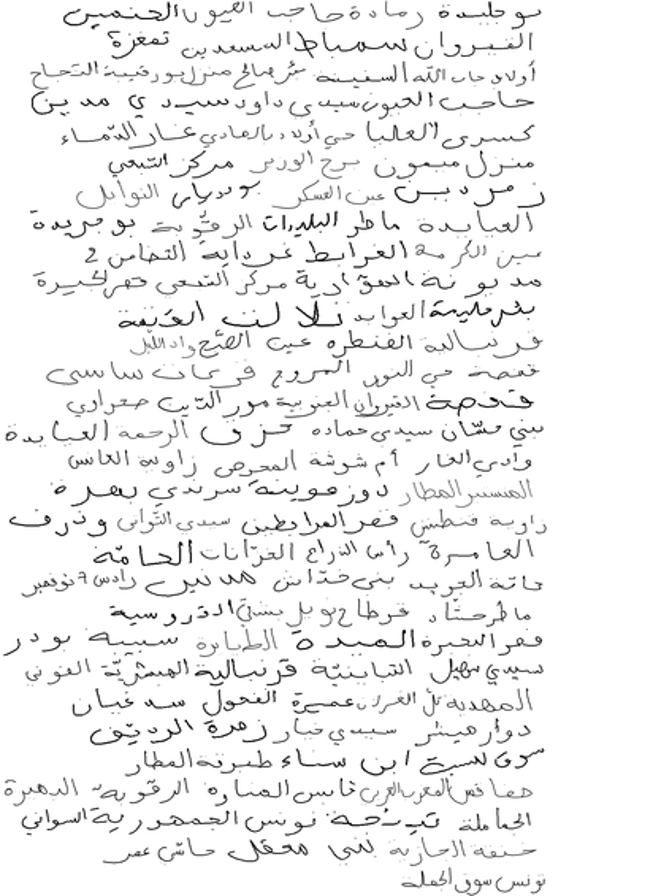 بوجليدة رمادة حاجب العيون الخنميين
القيروان سمباط المسعدين تمغزة
أولاد جاب الله السفينة بئر صالح منزل بورقيبة النجاح
حاجب العيون سيدي داود سيدي مدين
كسرى العليا حي أولاد بالهادي غار الدماء
منزل ميمون برج الوزير مركز الشعبي
زرمدين عين العسكر بودرياس النوايل
العبايدة ماطر البلديات الرقوبية بوجريدة
عين الكرمة الغرابط غرداية التضامن 2
مديونة الهوارية مركز الشعبي قصر الحيرة
بئر مليمة العوابد تلالت الونيفة
قرنبالية القنطرة عيب الصنح واد الليل
قفصة حي النور المروج فريحات ساسي
قفصة القيروان الجنوبية نور الدين صفراوي
بني حسان سيدي حمادة حزق الرحمة العبايدة
وادي الغار أم شوشة المعرض زاوية العانس
المنستير المطار دوز حوينة سرندي بهرة
زاوية قنطش قصر المرابطين سيدي التواتي وذرف
العامرة رأس الذراع الخزانات الحامة
حامة الجريد بني خداش مدنين رادس 7 نوفمبر
ماطر حشاد قرطاج نوبل بشني الدروسية
قصر البحيرة الميدة الطيايرة سبيبة بودر
سيدي سهيل التباينية قرنبالية المبشرية العوني
المهدية تل الغزلان عميرة الفحول سد غيان
دوار هيشر سيدي خيار زهرة الرديف
سوق السبت ابن سناء طبرقة المطار
صفاقس المغرب العربي قابس المنارة الرقوبة الدهيرة
الجماملة تبرتحة تونس الجمهورية السواني
خنقة الحازية بني معقل حاشي عمر
تونس سوق الجملة